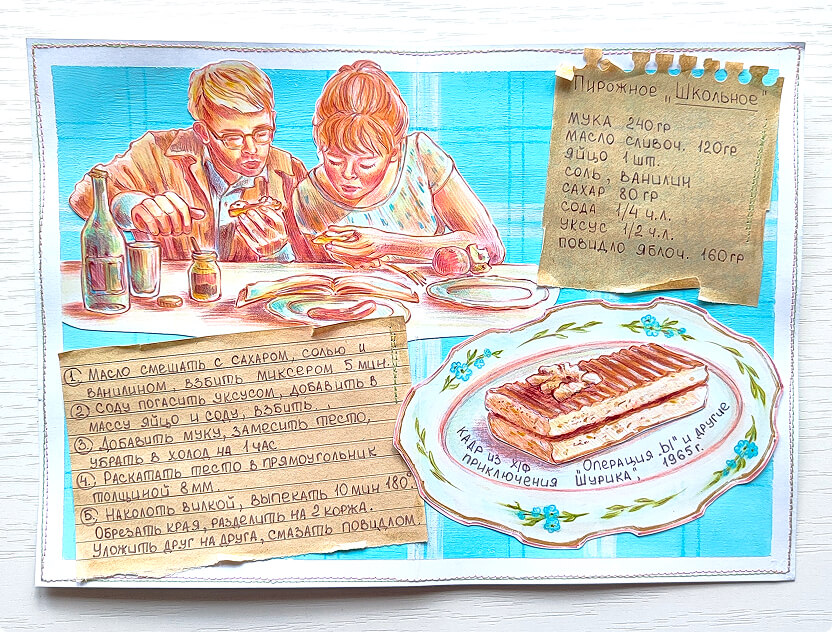 Пирожное „Школьное"
Мука 240 гр
Масло сливоч. 120 гр
Яйцо 1 шт.
Соль, ванилин
Сахар 80 гр
Сода 1/4 ч.л.
Уксус 1/2 ч.л.
Повидло яблоч. 160 гр
1. Масло смешать с сахаром, солью и
ванилином взбить миксером 5 мин.
2. Соду погасить уксусом, добавить в
массу яйцо и соду, взбить.
3. Добавить муку, замесить тесто,
убрать в холод на 1 час
4. Раскатать тесто в прямоугольник
толщиной 8 мм.
5. Наколоть вилкой, выпекать 10 мин 180
Обрезать края, разделить на 2 коржа.
Уложить друг на друга, смазать повидлом.
Кадр из х/ф "Операция „Ы" и другие
приключения Шурика", 1965 г.